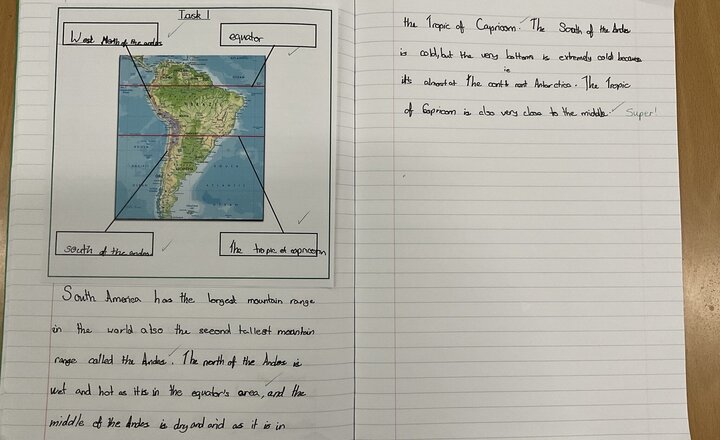 Task 1
West North of the andes
equator
south of the andes
The tropic of capricorn
South America has the longest mountain range
in the world also the second tallest mountain
range called the Andes. The north of the Andes is
wet and hot as it is in the equator's area, and the
middle of the Andes is dry and arid as it is in
the Tropic of Capricorn. The South of the Andes
is cold, but the very bottom is extremely cold because
it's almost at The
is
Antarctica. The Tropic
of Capricorn is also very close to the middle. Super!